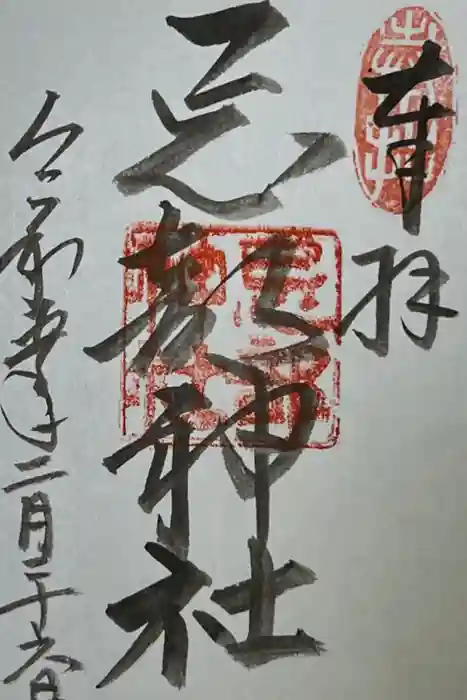 奉拝
忌部神社
令和年二月二十六日